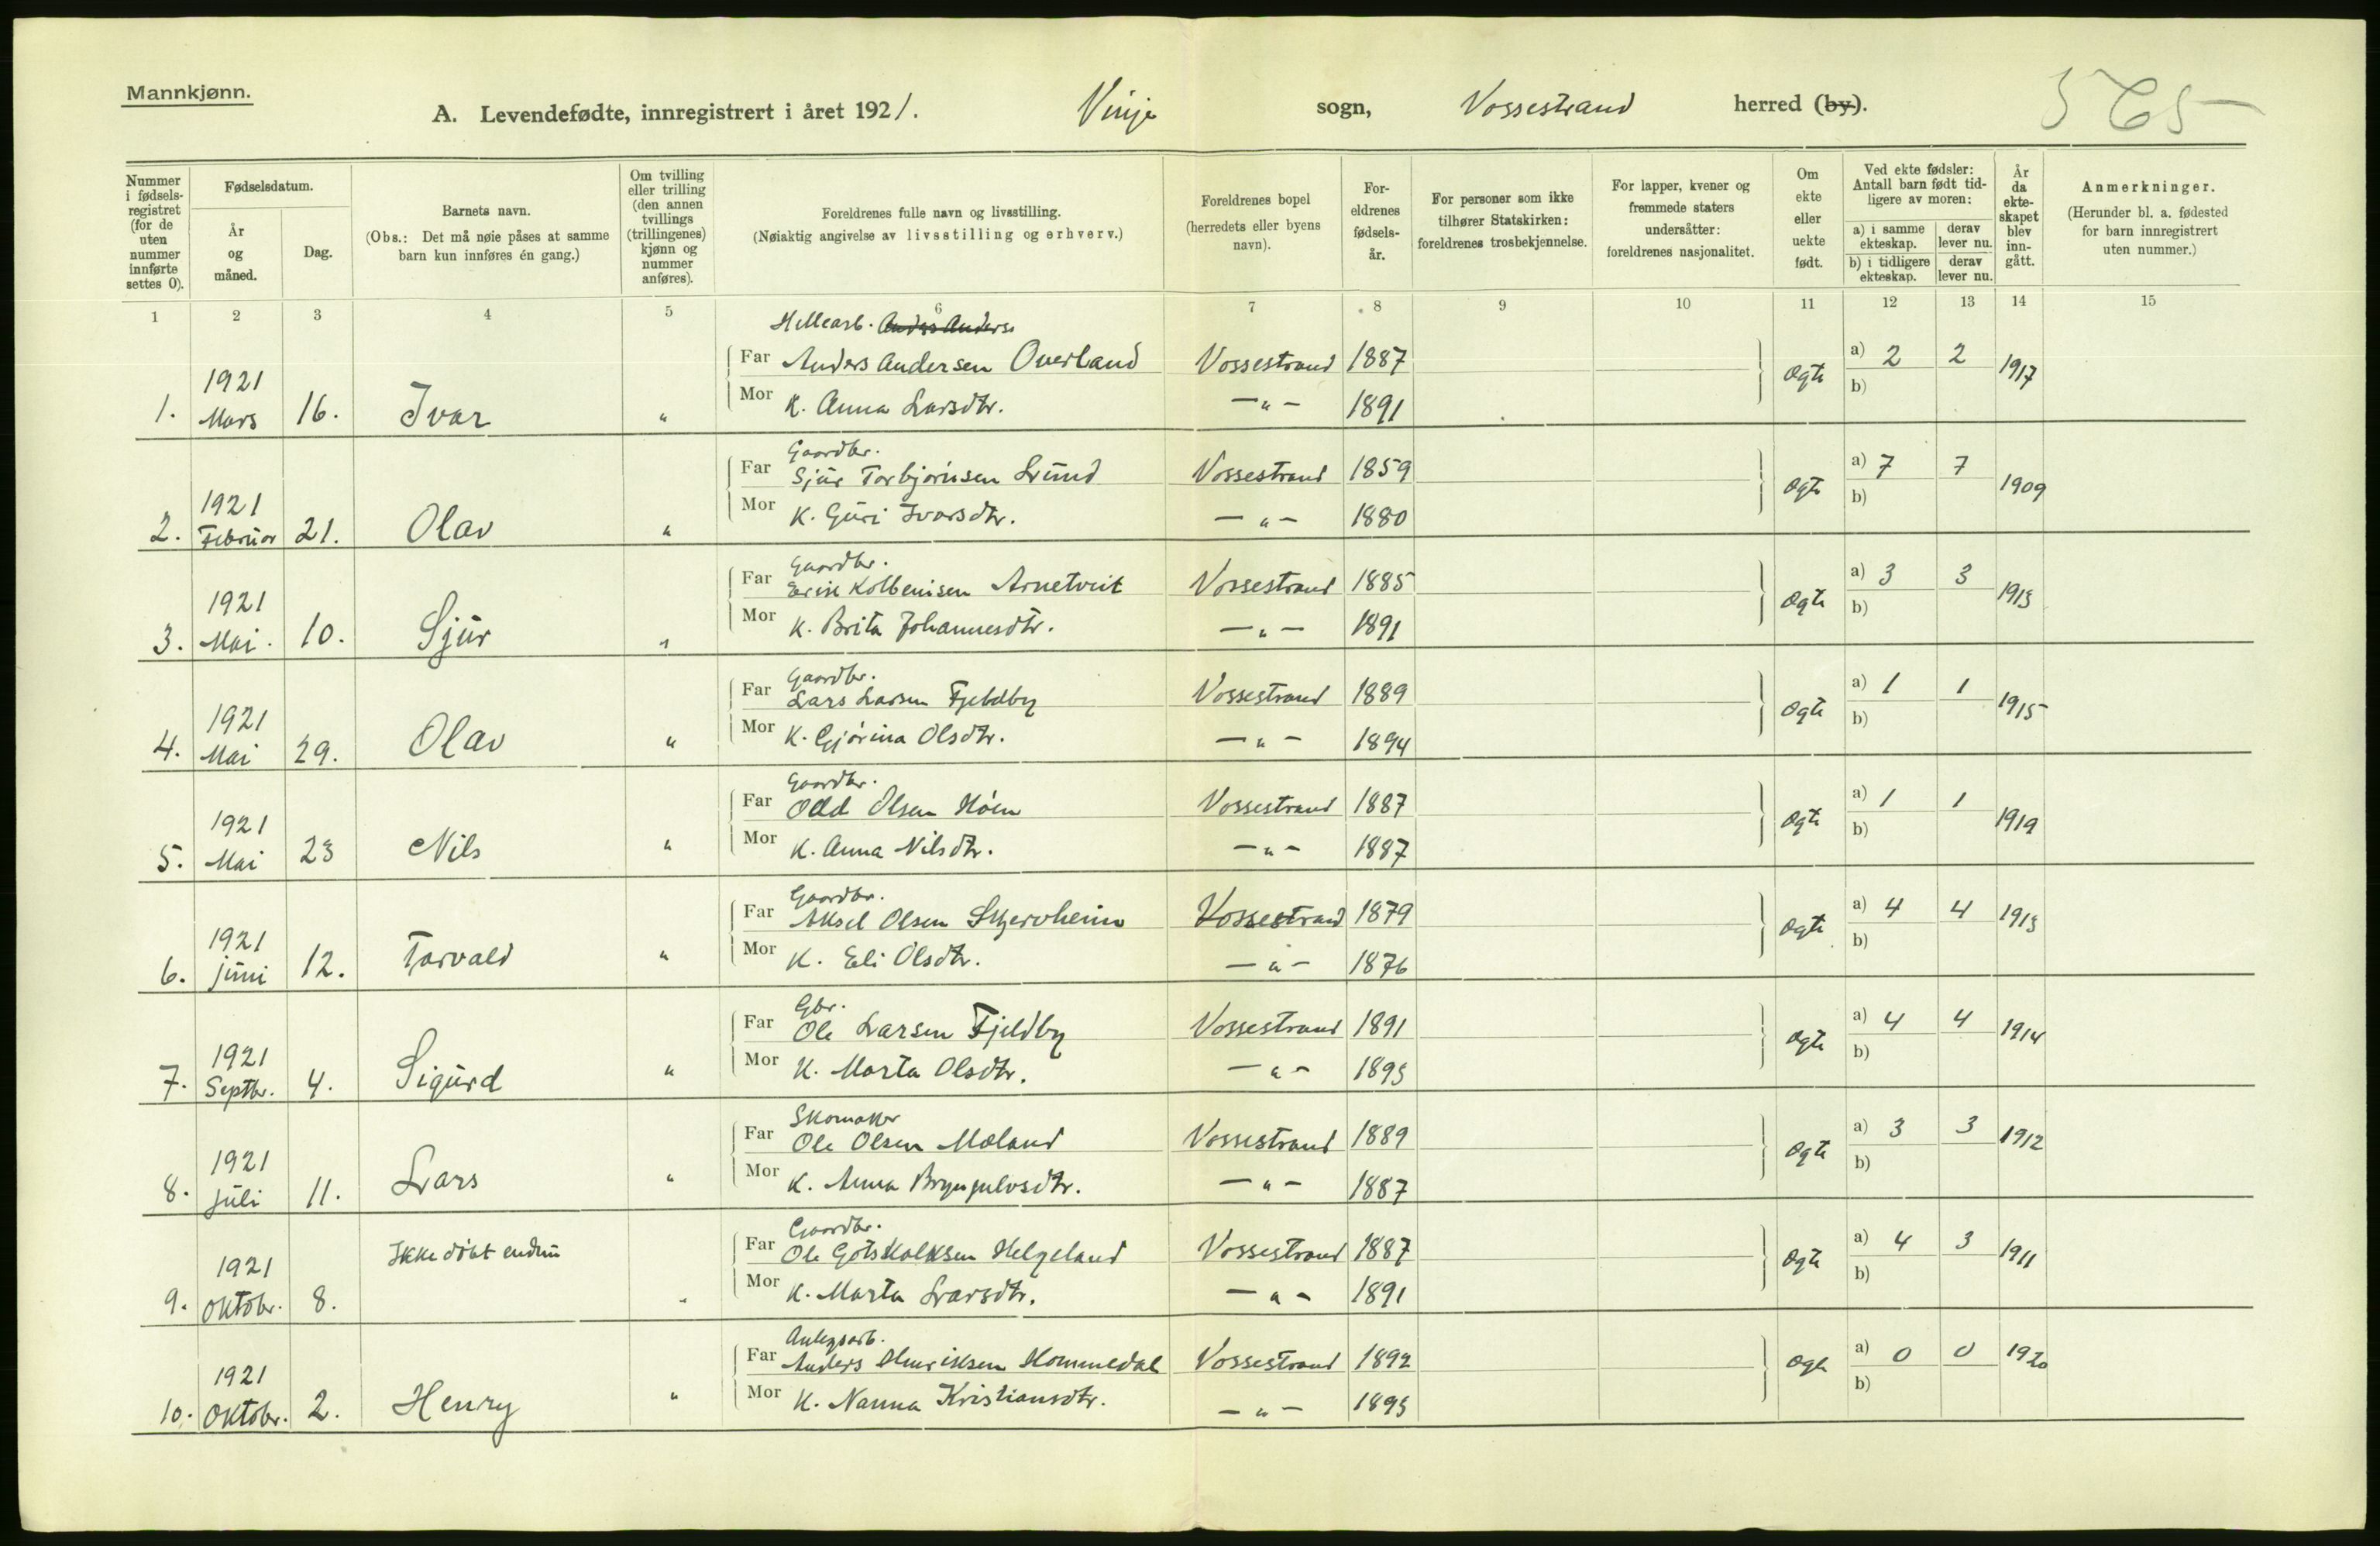 Mannkjønn.
A. Levendefødte, innregistrert i året 1921. Vinje sogn, Vossestrand herred (by). 565
Nummer i fødselsregistret (for de uten nummer innførte settes 0).
Fødselsdatum.
År og måned.
Dag.
Barnets navn.
(Obs.: Det må nøie påses at samme barn kun innføres én gang.)
Om tvilling eller trilling (den annen tvillings (trillingenes) kjønn og nummer anføres).
Foreldrenes fulle navn og livsstilling.
(Nøiaktig angivelse av livsstilling og erhverv.)
Foreldrenes bopel
(herredets eller byens navn).
Foreldrenes fødselsår.
For personer som ikke tilhører Statskirken: foreldrenes trosbekjennelse.
For lapper, kvener og fremmede staters undersåtter: foreldrenes nasjonalitet.
Om ekte eller uekte født.
Ved ekte fødsler: Antall barn født tidligere av moren:
a) i samme ekteskap.
derav lever nu.
b) i tidligere ekteskap.
derav lever nu.
År da ekteskapet blev inngått.
Anmerkninger.
(Herunder bl. a. fødested for barn innregistrert uten nummer.)
1 2 3 4 5 6 7 8 9 10 11 12 13 14 15
Hellearb. Anders Anders
Far Anders Andersen Overland Vossestrand 1887 a) 2 2
1921 Ogte 1917
1. Mars 16. Ivar " Mor K. Anna Larsdtr. —"— 1891 b)
Gaardbr.
Far Sjur Torbjørnsen Lund Vossestrand 1859 a) 7 7
1921 Ogte 1909
2. Februar 21. Olav " Mor K. Guri Ivarsdtr. —"— 1880 b)
Gaardbr.
Far Kolbeinsen Arnetveit Vossestrand 1885 a) 3 3
1921 Ogte 1913
3. Mai. 10. Sjur " Mor K. Brita Johannesdtr. —"— 1891 b)
Gaardbr.
Far Lars Larsen Fjeldby Vossestrand 1889 a) 1 1
1921 Ogte 1915
4. Mai 29. Olav " Mor K. Gjørina Olsdtr. —"— 1894 b)
Gaardbr.
Far Odd Olsen Vossestrand 1887 a) 1 1
1921 Ogte 1919
5. Mai 23 Nils " Mor K. Anna Nilsdtr. —"— 1887 b)
Gaardbr.
Far Aksel Olsen Skjervheim Vossestrand 1879 a) 4 4
1921 Ogte 1913
6. juni 12. Torvald " Mor K. Eli Olsdtr. —"— 1876 b)
Gbr.
Far Ole Larsen Fjeldby Vossestrand 1891 a) 4 4
1921 Ogte 1914
7. Septbr. 4. Sigurd " Mor K. Marta Olsdtr. —"— 1893 b)
Skomaker
Far Ole Olsen Møland Vossestrand 1889 a) 3 3
1921 Ogte 1912
8. juli 11. Lars " Mor K. Anna Brynjulvsdtr. —"— 1887 b)
Gaardbr.
Ikke døbt endnu Far Ole Gotskalksen Helgeland Vossestrand 1887 a) 4 3
1921 Ogte 1911
9. Oktobr. 8. " Mor K. Marta Larsdtr. —"— 1891 b)
Anlegsarb.
Far Anders Henriksen Hommedal Vossestrand 1892 a) 0 0
1921 Ogte 1920
10. Oktobr. 2. Henry " Mor K. Nanna Kristiansdtr. —"— 1893 b)